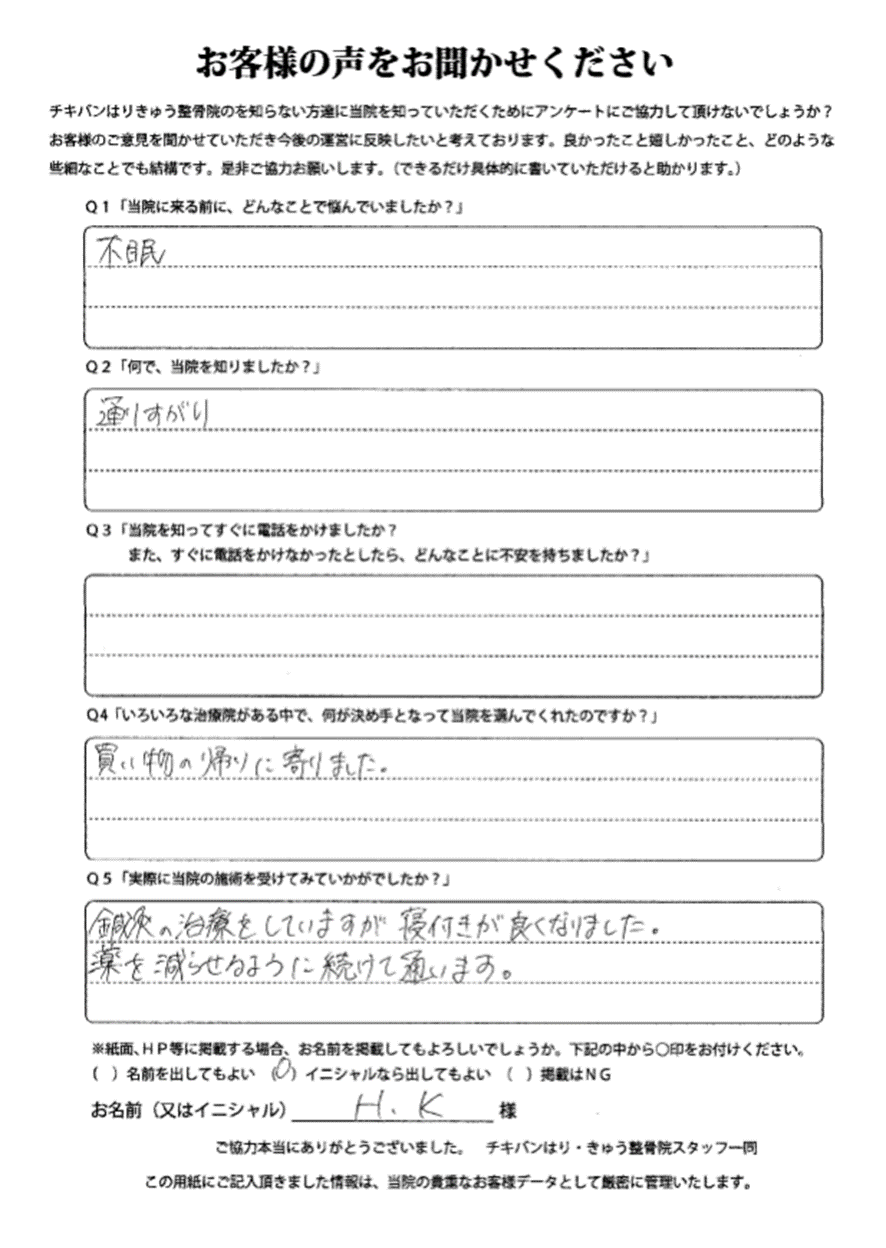 お客様の声をお聞かせください
チキバンはりきゅう整骨院のを知らない方達に当院を知っていただくためにアンケートにご協力して頂けないでしょうか？
お客様のご意見を聞かせていただき今後の運営に反映したいと考えております。良かったこと嬉しかったこと、どのような
些細なことでも結構です。是非ご協力お願いします。（できるだけ具体的に書いていただけると助かります。）
Q1「当院に来る前に、どんなことで悩んでいましたか？」
不眠
Q2「何で、当院を知りましたか？」
通りすがり
Q3「当院を知ってすぐに電話をかけましたか？
また、すぐに電話をかけなかったとしたら、どんなことに不安を持ちましたか？」
Q4「いろいろな治療院がある中で、何が決め手となって当院を選んでくれたのですか？」
買い物の帰りに寄りました。
Q5「実際に当院の施術を受けてみていかがでしたか？」
鍼灸の治療をしていますが寝付きが良くなりました。
薬を減らせるように続けて通います。
※紙面、HP等に掲載する場合、お名前を掲載してもよろしいでしょうか。下記の中から〇印をお付けください。
（ ）名前を出してもよい （〇）イニシャルなら出してもよい （ ）掲載はNG
お名前（又はイニシャル） H.K 様
ご協力本当にありがとうございました。 チキバンはり・きゅう整骨院スタッフ一同
この用紙にご記入頂きました情報は、当院の貴重なお客様データとして厳密に管理いたします。